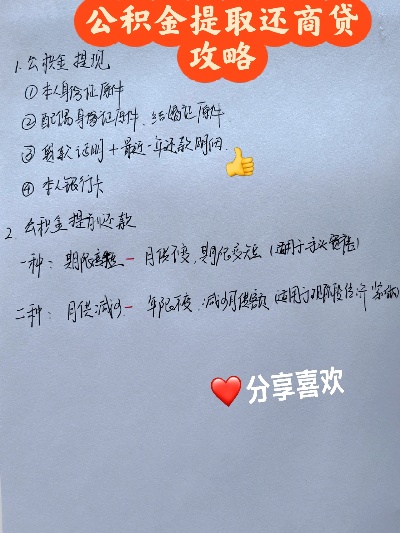 公积金提取还商贷
攻略
1. 公积金提现
① 本人身份证原件
② 配偶身份证原件、结婚证原件
③ 贷款证明+最近一年还款明细
④ 本人银行卡
2. 公积金提前还款
一种：期限缩短－月供不变,期限变短(适用于
二种：月供减少－年限不变,减少月供额(适用于
分享喜欢